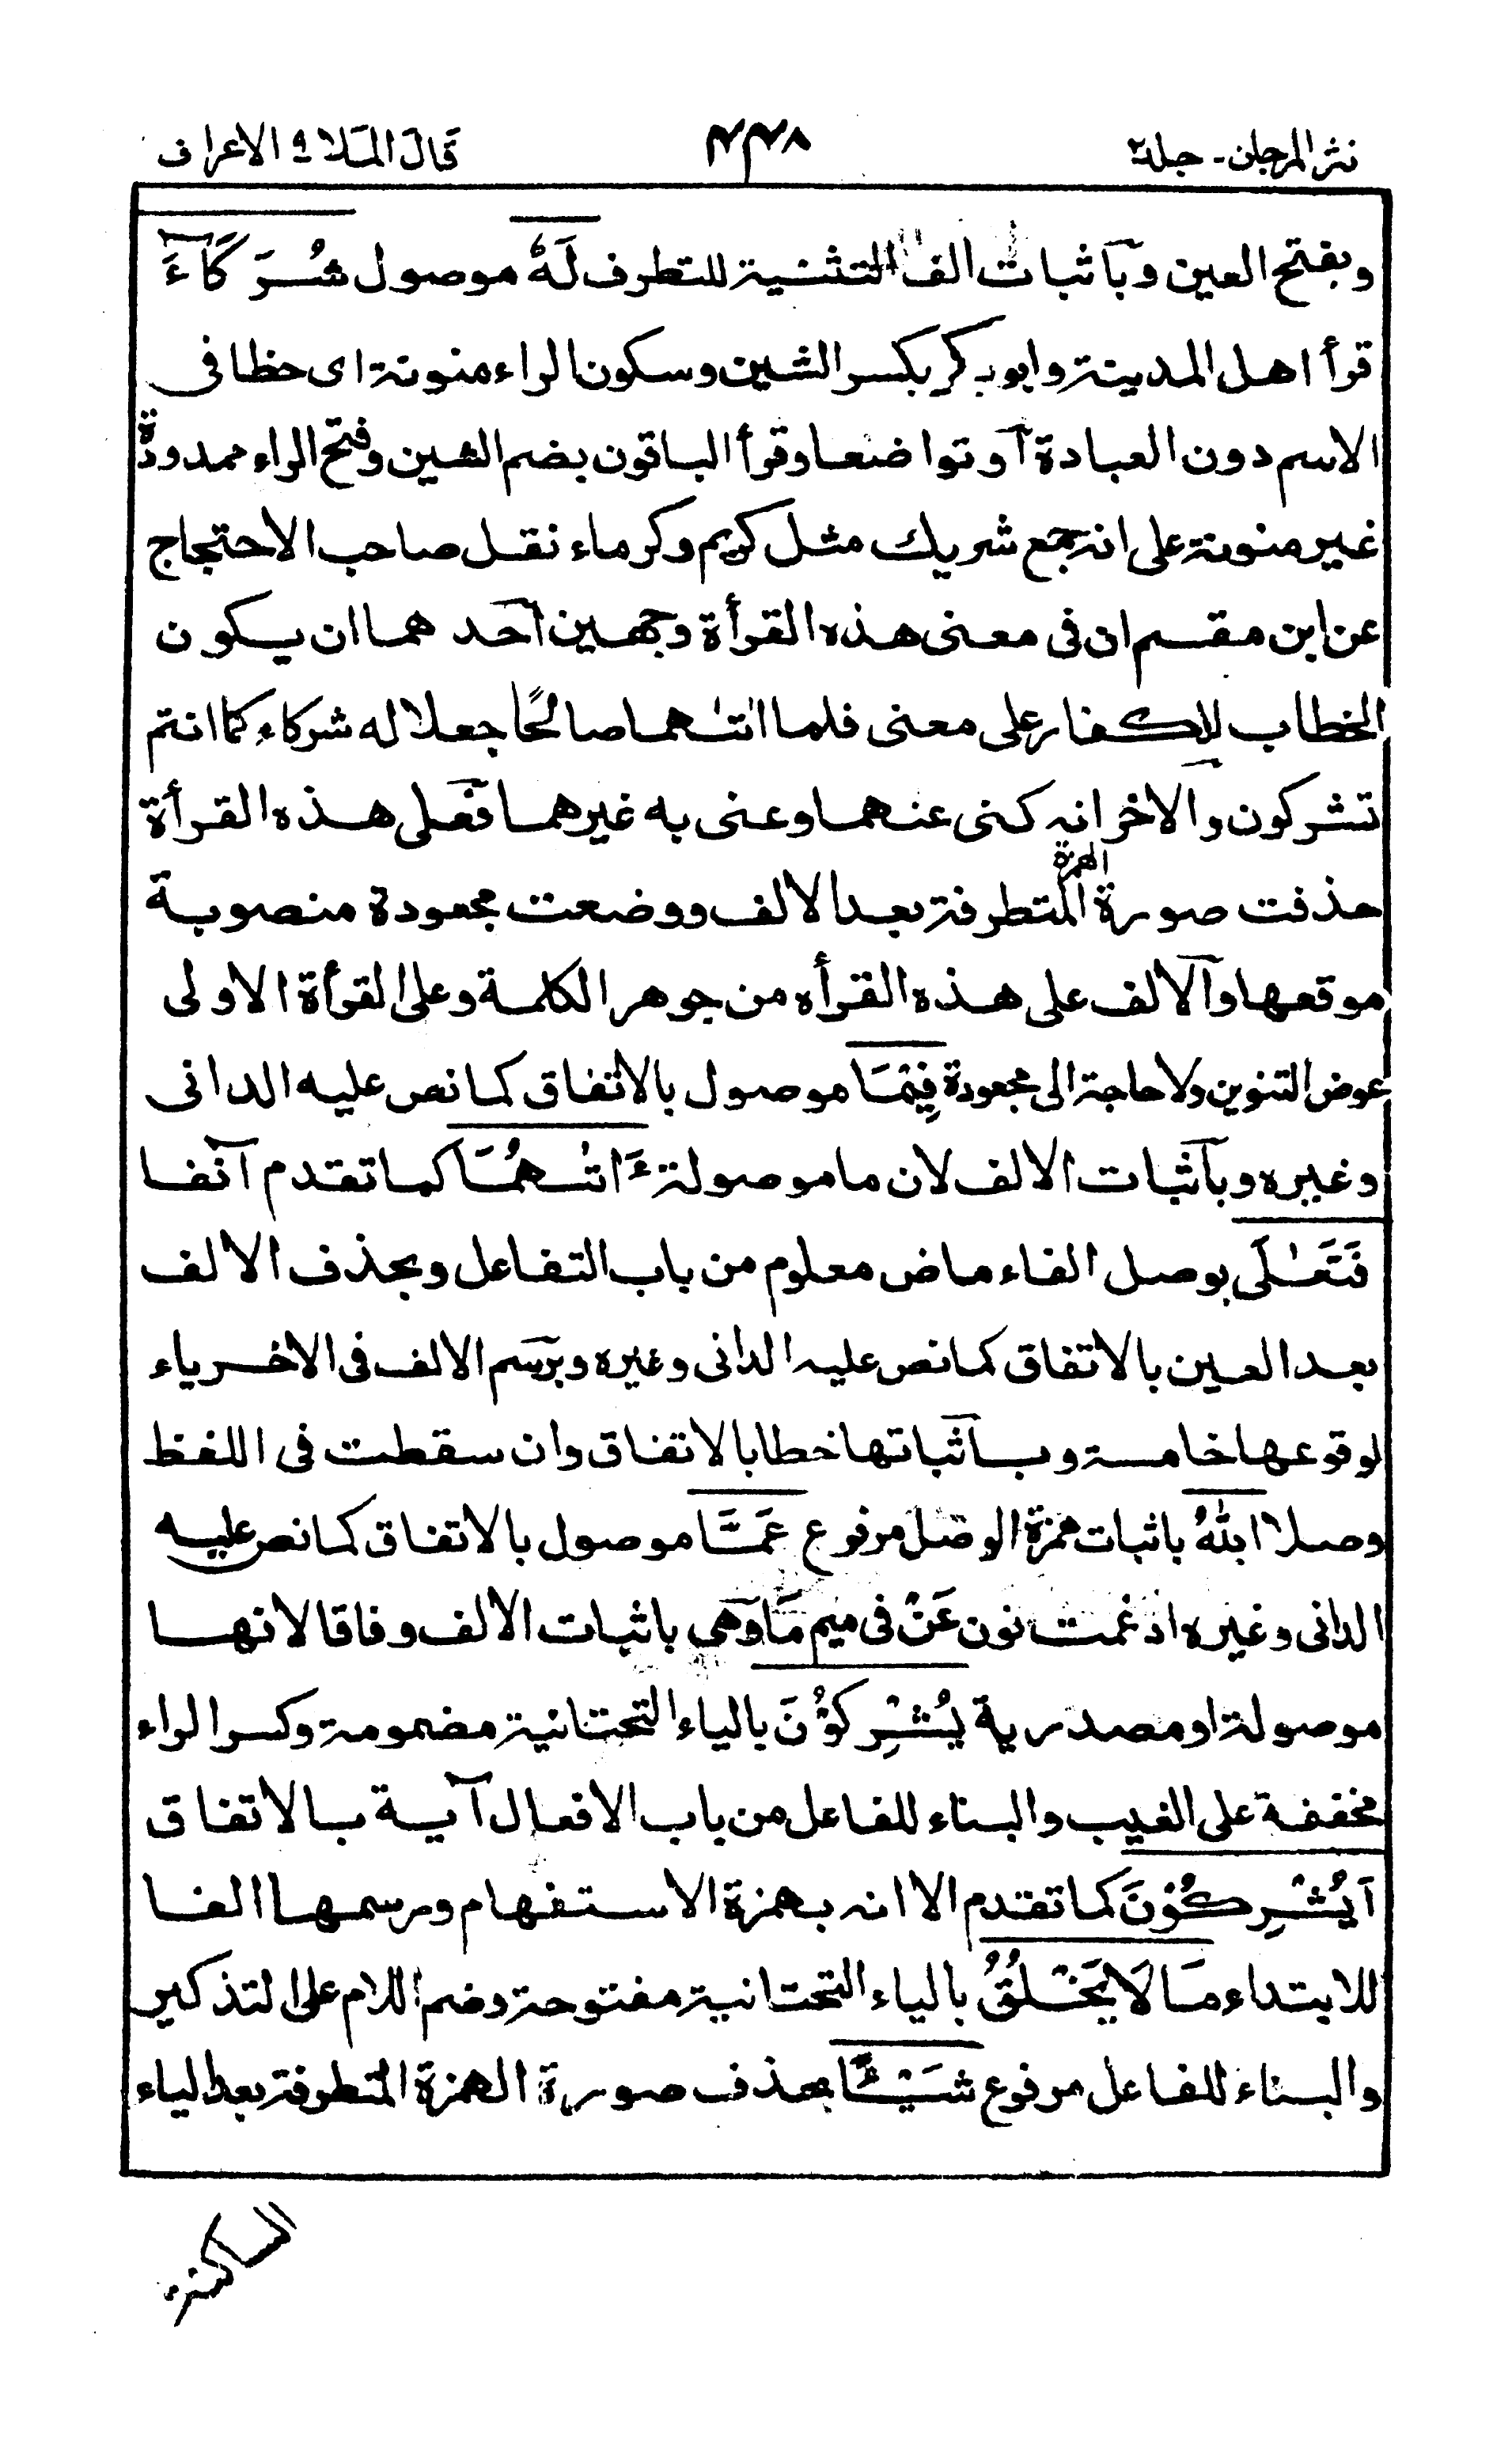 نثر المرجان - جلد ٢
٤٤٨
قال الملا ٩ الاعراف
وبفتح العين وبآثبات الف التثنية للتطرف لَهٗ موصول شُرَكَآءَ
قرأ اهل المدينة وابو بكر بكسر الشين وسكون الراء منونة اى حظا فى
الاسم دون العبادة آوتواضعا وقرأ الباقون بضم الشين وفتح الراء ممدودة
غير منونة على انه جمع شريك مثل كريم وكرماء نقل صاحب الاحتجاج
عن ابن مقسم ان فى معنى هذه القرأة وجهين آحدهما ان يكون
الخطاب للكفار على معنى فلما اتٰهما صالحًا جعلا له شركاء كما انتم
تشركون والآخر انه كنى عنهما وعنى به غيرهما فعلى هذه القرأة
حذفت صورة الهمزة المتطرفة بعد الالف ووضعت مجعودة منصوبة
موقعها وآلالف على هذه القرأه من جوهر الكلمة وعلى القرأة الاولى
عوض التنوين ولا حاجة الى مجعودة فِيْمَا موصول بالاتفاق كما نص عليه الدانى
وغيره وبآثبات الالف لان ما موصولة ءَاتٰهُمَا كما تقدم آنفا
فَتَعٰلَى بوصل الفاء ماض معلوم من باب التفاعل وبحذف الالف
بعد العين بالاتفاق كما نص عليه الدانى وغيره وبرسم الالف فى الاخر ياء
لوقوعها خامسة وبآثباتها خطا بالاتفاق وان سقطت فى اللفظ
وصلا اللهُ باثبات همزة الوصل مرفوع عَمَّا موصول بالاتفاق كما نص عليه
الدانى وغيره ادغمت نون عَنْ فى ميم مَا وهى باثبات الالف وفاقا لانها
موصولة او مصدرية يُشْرِكُوْنَ بالياء التحتانية مضمومة وكسر الراء
مخففة على الغيب والبناء للفاعل من باب الافعال آية بالاتفاق
اَيُشْرِكُوْنَ كما تقدم الا انه بهمزة الاستفهام ورسمها الفا
للابتداء مَا لَا يَخْلُقُ بالياء التحتانية مفتوحة وضم اللام على التذكير
والبناء للفاعل مرفوع شَيْـًٔا بحذف صورة الهمزة المتطرفة بعد الياء
الساكنة